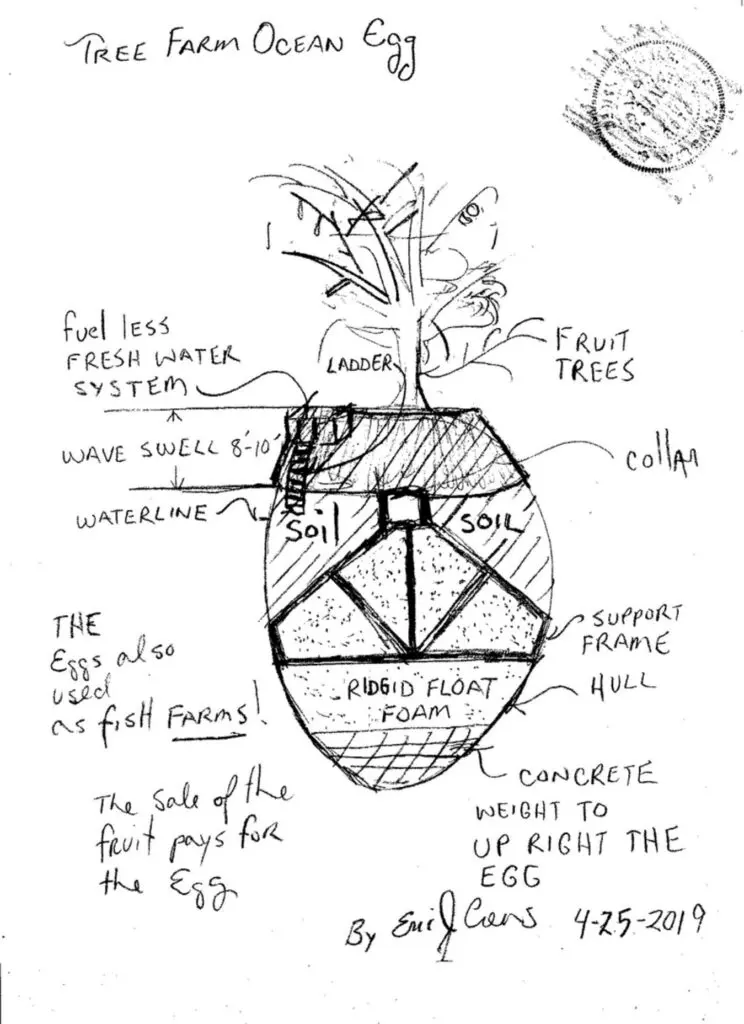 TREE FARM OCEAN Egg
fuel less
FRESH WATER
SYSTEM
LADDER
FRUIT
TREES
WAVE SWELL 8'-10'
COllAR
WATERLINE
SOIL
SOIL
THE
Eggs also
used
as fish FARMS!
SUPPORT
FRAME
HULL
RIDGID FLOAT
FOAM
The Sale of the
fruit pays for
the Egg
CONCRETE
WEIGHT TO
UP RIGHT THE
EGG
By 4-25-2019